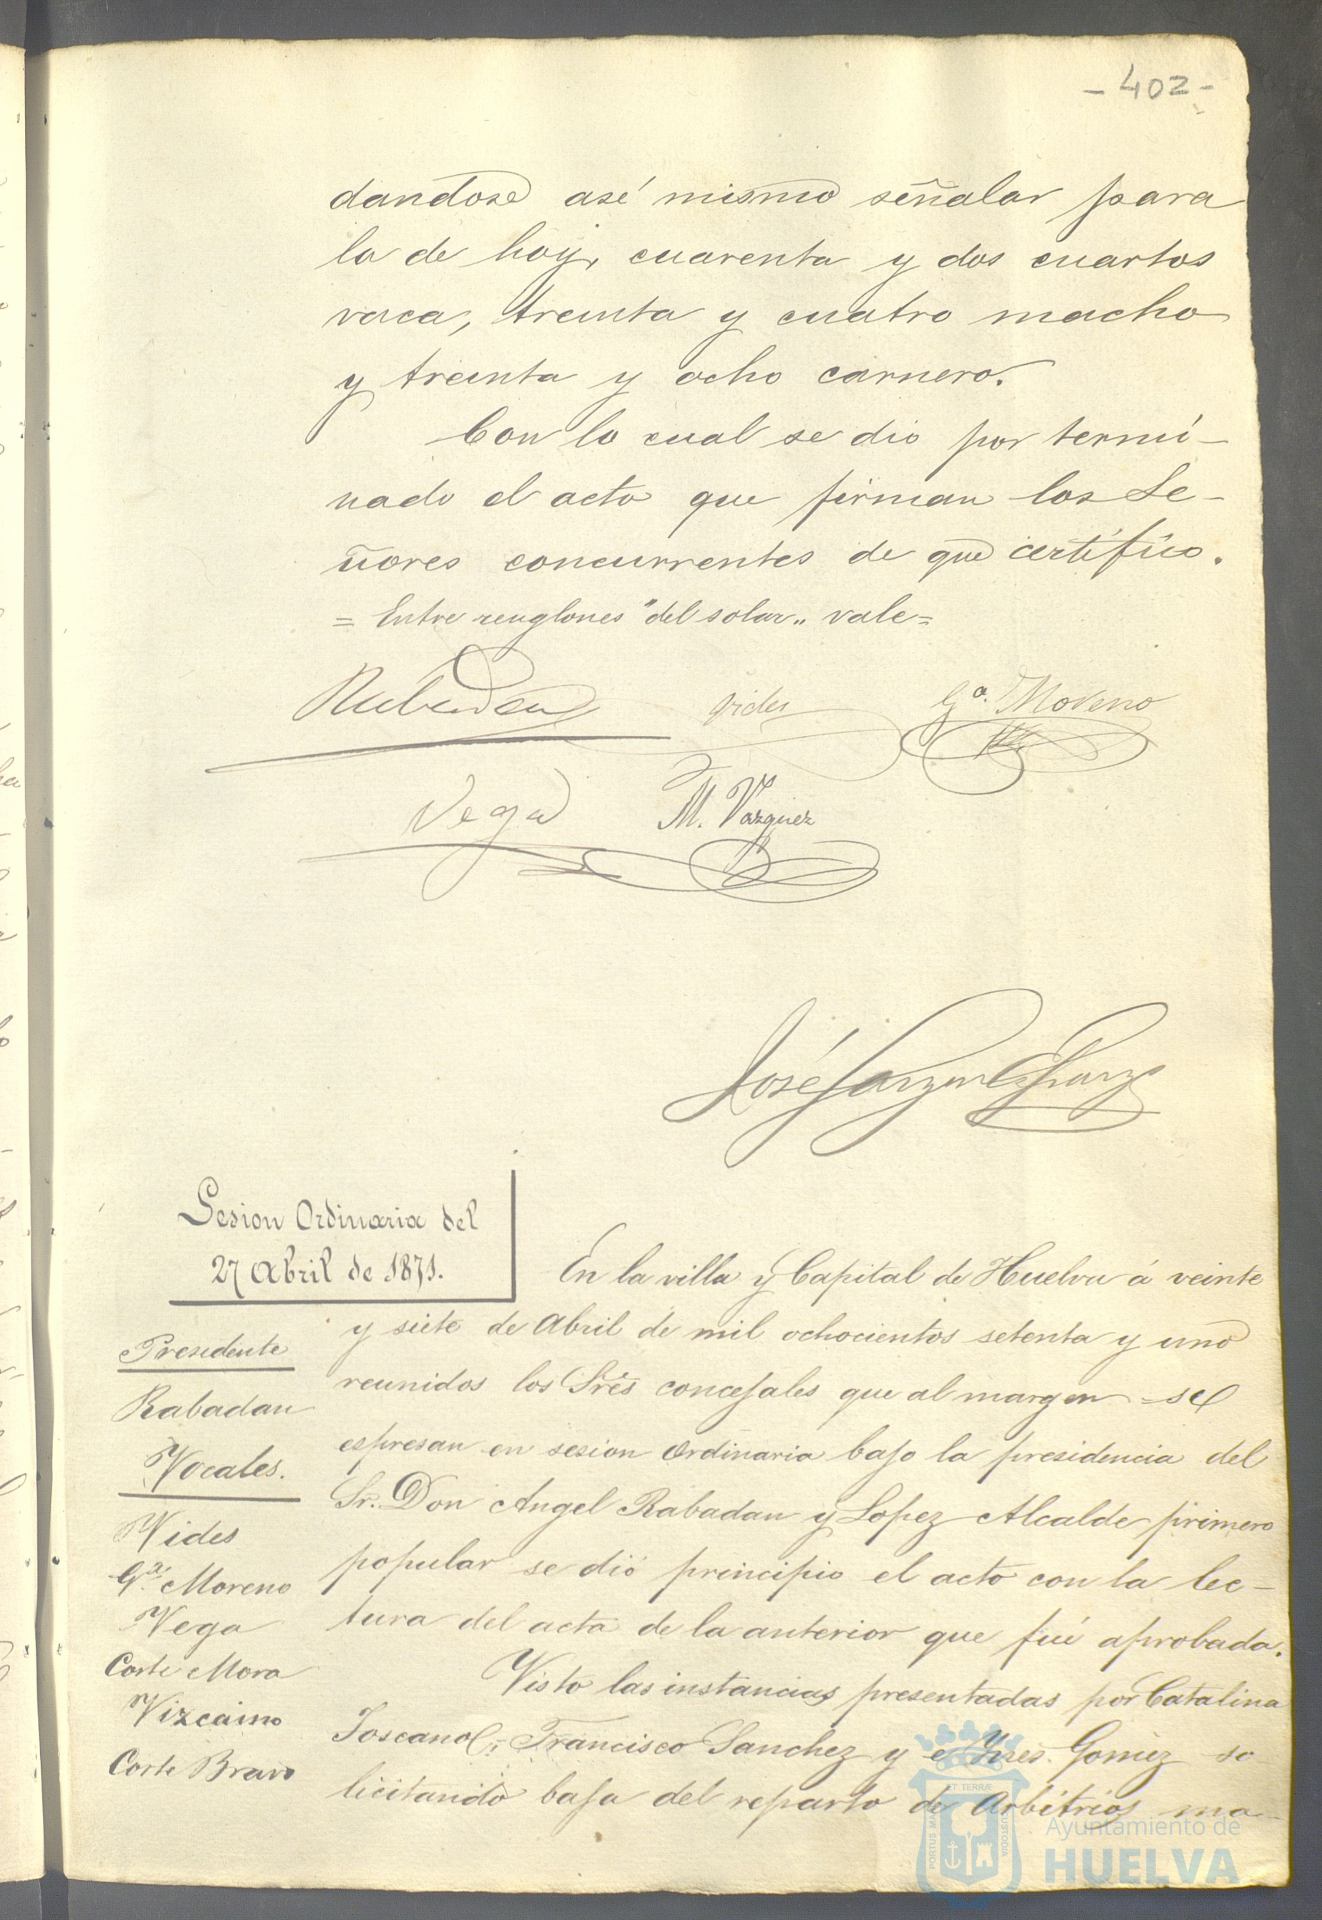 - 402 -
dandose asé mismo señalar para
la de hoy, cuarenta y dos cuartos
vaca, treinta y cuatro macho
y treinta y ocho carnero.
Con lo cual se dio por termi-
nado el acto que firman los Se-
ñores concurrentes de que certifico.
= Entre renglones "del solar" vale=
Rabadan Vides Gª. Moreno
Vega M. Vazquez
José
Sesion Ordinaria del
27 Abril de 1871.
En la villa y Capital de Huelva á veinte
y siete de Abril de mil ochocientos setenta y uno
reunidos los Sres concejales que al margen se
espresan en sesion ordinaria bajo la presidencia del
Sr. Don Angel Rabadan y Lopez Alcalde primero
popular se dió principio el acto con la lec-
tura del acta de la anterior que fué aprobada.
Visto las instancias presentadas por Catalina
Toscano, Francisco Sanchez y Gomez so
licitando baja del reparto de Arbitrios ma-
Presidente
Rabadan
Vocales.
Vides
Gª. Moreno
Vega
Corte Mora
Vizcaino
Corte Bravo
PORTUS MARIS ET TERRÆ CUSTODIA
Ayuntamiento de
HUELVA